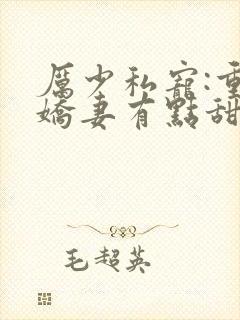 厲少私寵:重
嬌妻有點甜
毛超英